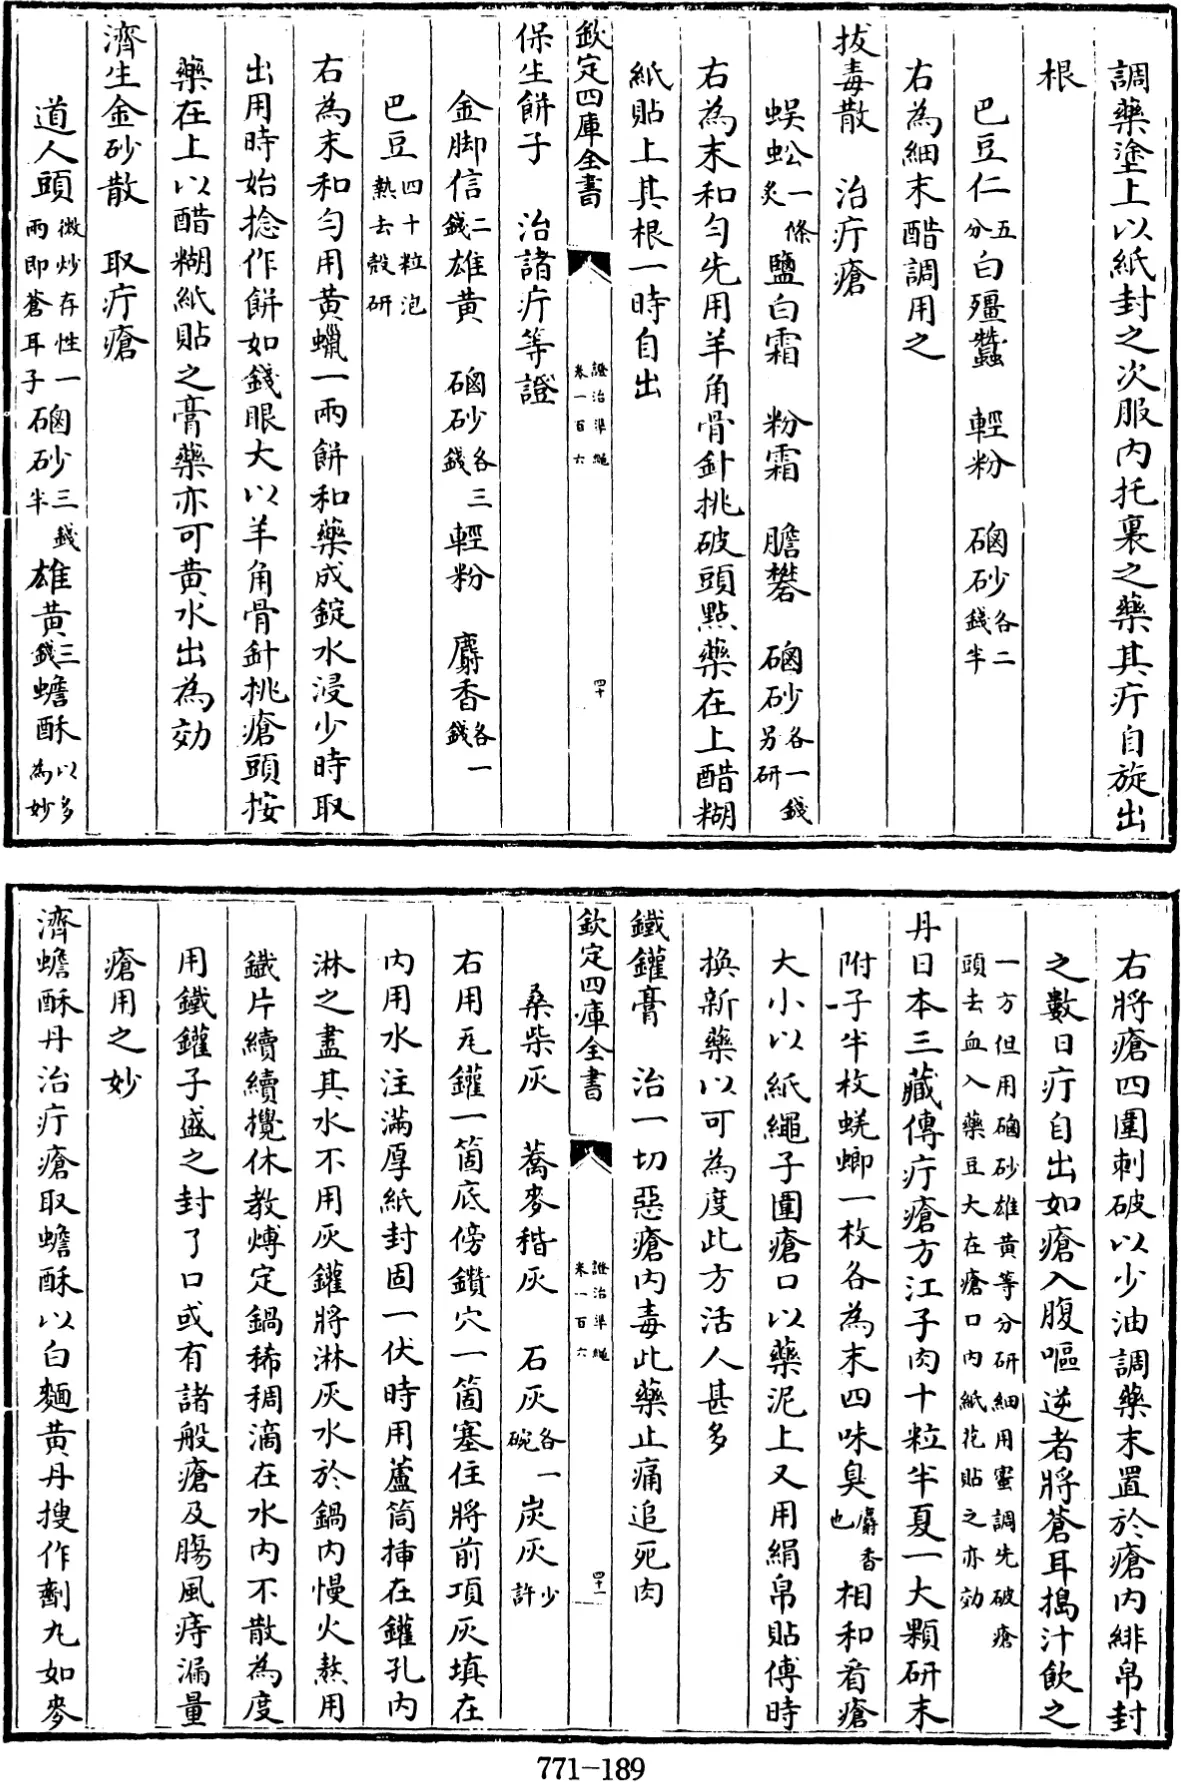 調藥塗上以紙封之次服內托裏之藥其疔自旋出
根
巴豆仁五分白殭蠶 輕粉 硇砂各二錢半
右為細末醋調用之
拔毒散 治疔瘡
蜈蚣一條炙鹽白霜 粉霜 膽礬 硇砂各一錢另研
右為末和勻先用羊角骨針挑破頭點藥在上醋糊
紙貼上其根一時自出
欽定四庫全書 證治準繩卷一百六 四十
保生餅子 治諸疔等證
金脚信二錢雄黃 硇砂各三錢輕粉 麝香各一錢
巴豆四十粒泡熱去殼研
右為末和勻用黃蠟一兩餅和藥成錠水浸少時取
出用時始捻作餅如錢眼大以羊角骨針挑瘡頭按
藥在上以醋糊紙貼之膏藥亦可黃水出為効
濟生金砂散 取疔瘡
道人頭微炒存性一兩即蒼耳子硇砂三錢半雄黃三錢蟾酥以多為妙
右將瘡四圍刺破以少油調藥末置於瘡內緋帛封
之數日疔自出如瘡入腹嘔逆者將蒼耳搗汁飲之
一方但用硇砂雄黃等分研細用蜜調先破瘡頭去血入藥豆大在瘡口內紙花貼之亦効
丹日本三藏傳疔瘡方江子肉十粒半夏一大顆研末
附子半枚蜣螂一枚各為末四味臭麝香也相和看瘡
大小以紙繩子圍瘡口以藥泥上又用絹帛貼傅時
換新藥以可為度此方活人甚多
鐵罐膏 治一切惡瘡內毒此藥止痛追死肉
欽定四庫全書 證治準繩卷一百六 四十一
桑柴灰 蕎麥稭灰 石灰各一碗炭灰少許
右用瓦罐一箇底傍鑽穴一箇塞住將前項灰填在
內用水注滿厚紙封固一伏時用蘆筒揷在罐孔內
淋之盡其水不用灰罐將淋灰水於鍋內慢火熬用
鐵片續續攪休教煿定鍋稀稠滴在水內不散為度
用鐵罐子盛之封了口或有諸般瘡及腸風痔漏量
瘡用之妙
濟蟾酥丹治疔瘡取蟾酥以白麵黃丹搜作劑丸如麥
771-189